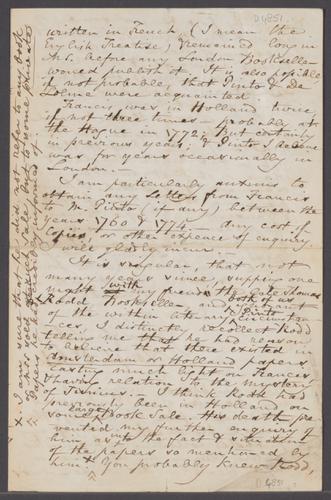 D4851.
written in French, (I mean the
English Treatise) remained long in
MS. before any London Bookseller
would publish it. It is also possible
if not probable, that Pinto & De
Lolme were acquainted
Francis was in Holland twice,
if not three times — probably at
the Hague in 1772, but certainly
in previous years; & Pinto I believe
was for years occasionally in
London.—
I am particularly anxious to
obtain any Letters from Francis
to De Pinto (if any) between the
years 1760 & 1774.— any cost of
Copies, or other expence of enquiry
I will gladly incur.—
It is singular, that not
many years since, supping one
night with my friend the late Thomas
Rodd Bookseller and both of us
of the within literary
ces, I distinctly recollect Rodd
telling me that he had reason
to believe that there existed in
Amsterdam or Holland papers
casting much light on Francis'
having relation to the mystery
of Junius.— I think Rodd had
lately been in Holland on
some large Book Sale. His death pre-
vented my further enquiry of
him, as to the fact & situation
of the papers so mentioned by
him + You probably knew Rodd,
+ I am sure that he did not refer to any book
Papers he had
D 4851.